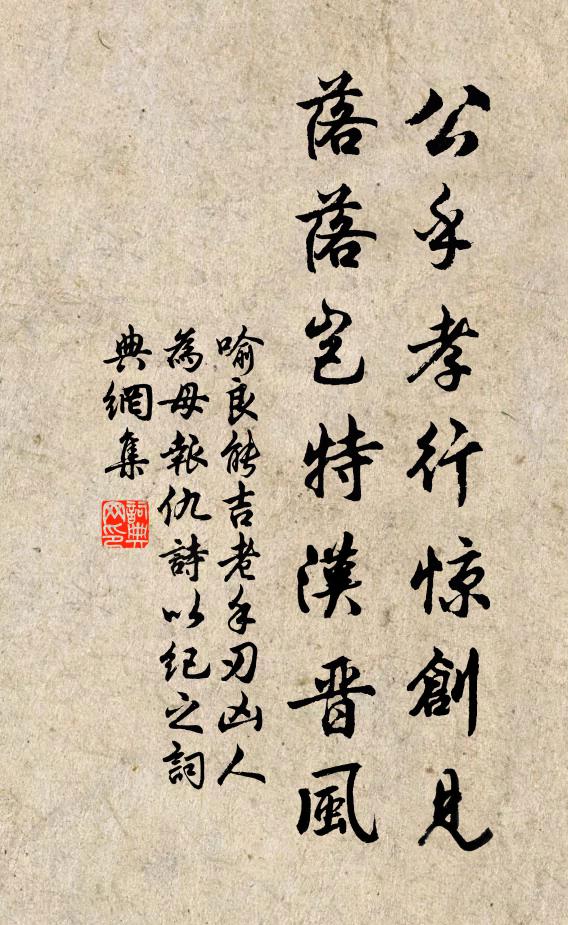 公乎孝行惊創見
落落豈特漢晋風
喻良能吉老手刃凶人
為母報仇詩以纪之詞
典網集
詞典
网印